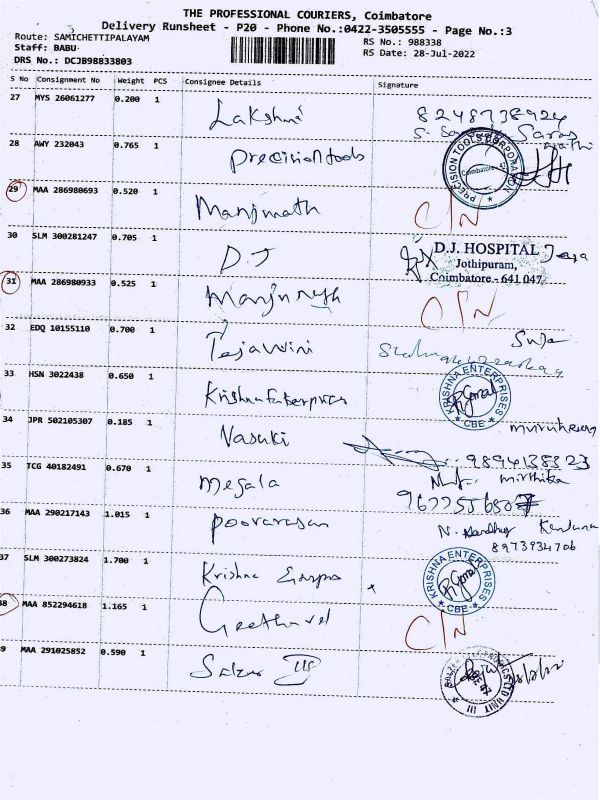 THE PROFESSIONAL COURIERS, Coimbatore
Delivery Runsheet - P20 - Phone No.:0422-3505555 - Page No.:3
Route: SAMICHETTIPALAYAM
Staff: BABU
DRS No.: DCJB98833803
RS No.: 988338
RS Date: 28-Jul-2022
S No Consignment No Weight PCS Consignee Details Signature
27 MYS 26061277 0.200 1 Lakshmi 8248738924
28 AWY 232043 0.765 1 Precision tools PRECISION TOOLS CORPORATION Coimbatore
29 MAA 286980693 0.520 1 Manjunath C/N
30 SLM 300281247 0.705 1 D.J D.J. HOSPITAL
Jothipuram,
Coimbatore - 641 047
31 MAA 286980933 0.525 1 Manjunath C/N
32 EDQ 10155110 0.700 1 Tejawini
33 HSN 3022438 0.650 1 Krishna Enterprises KRISHNA ENTERPRISES CBE
34 JPR 502105307 0.185 1 Vasuki 9894138323
35 TCG 40182491 0.670 1 Megala Mirthika
36 MAA 290217143 1.015 1 Poovarasan
8973934706
37 SLM 300273824 1.700 1 Krishna KRISHNA ENTERPRISES CBE
38 MAA 852294618 1.165 1 Geethavel C/N
39 MAA 291025852 0.590 1 Salzer III